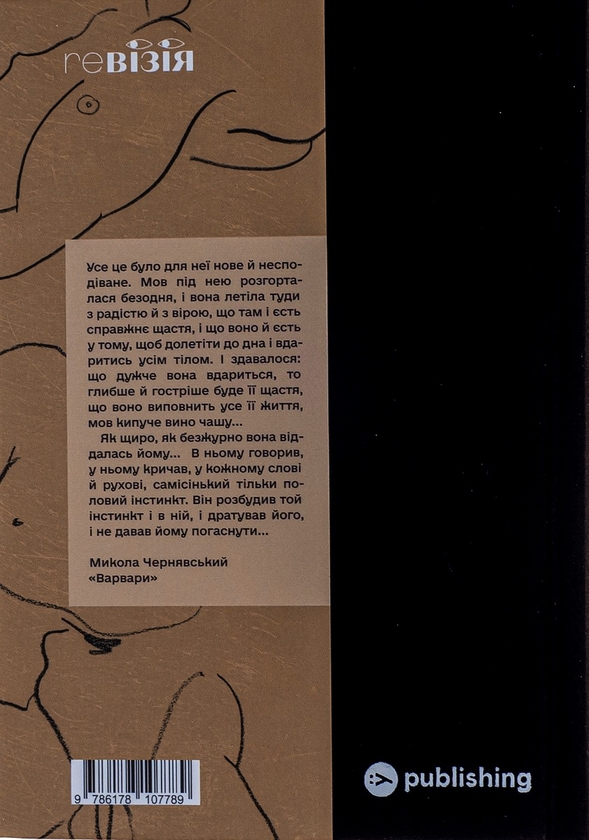 reвізія
Усе це було для неї нове й неспо-
діване. Мов під нею розгорта-
лася безодня, і вона летіла туди
з радістю й з вірою, що там і єсть
справжнє щастя, і що воно й єсть
у тому, щоб долетіти до дна і вда-
ритись усім тілом. І здавалося:
що дужче вона вдариться, то
глибше й гостріше буде її щастя,
що воно виповнить усе її життя,
мов кипуче вино чашу...
Як щиро, як безжурно вона від-
далась йому... В ньому говорив,
у ньому кричав, у кожному слові
й рухові, самісінький тільки по-
ловий інстинкт. Він розбудив той
інстинкт і в ній, і дратував його,
і не давав йому погаснути...
Микола Чернявський
«Варвари»
9 786178 107789
:y publishing